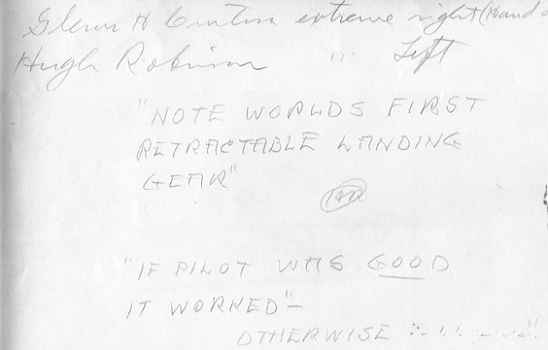 Glenn H Curtiss extreme right (Hand
Hugh Robinson " Left
"NOTE WORLDS FIRST
RETRACTABLE LANDING
GEAR"
"IF PILOT WAS GOOD
IT WORKED"—
OTHERWISE